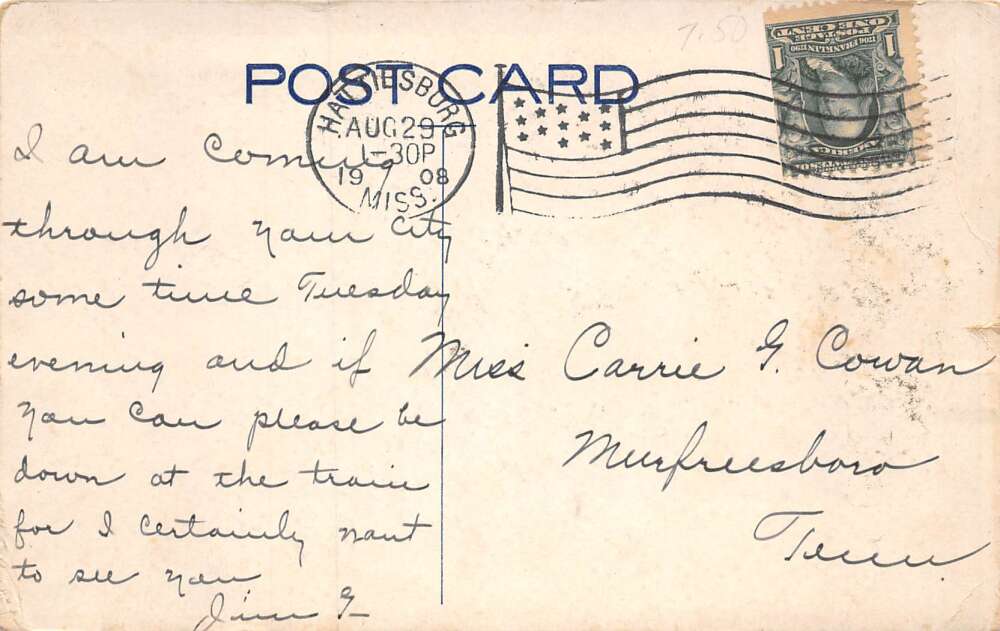 7.50
POST CARD
HATTIESBURG
AUG 29
1-30P
1908
MISS.
ONE CENT
POSTAGE
1706 FRANKLIN 1790
1 1
I am coming
through your city
some time Tuesday
evening and if
you can please be
down at the train
for I certainly want
to see you
Jim G
Miss Carrie G. Cowan
Murfreesboro
Tenn.